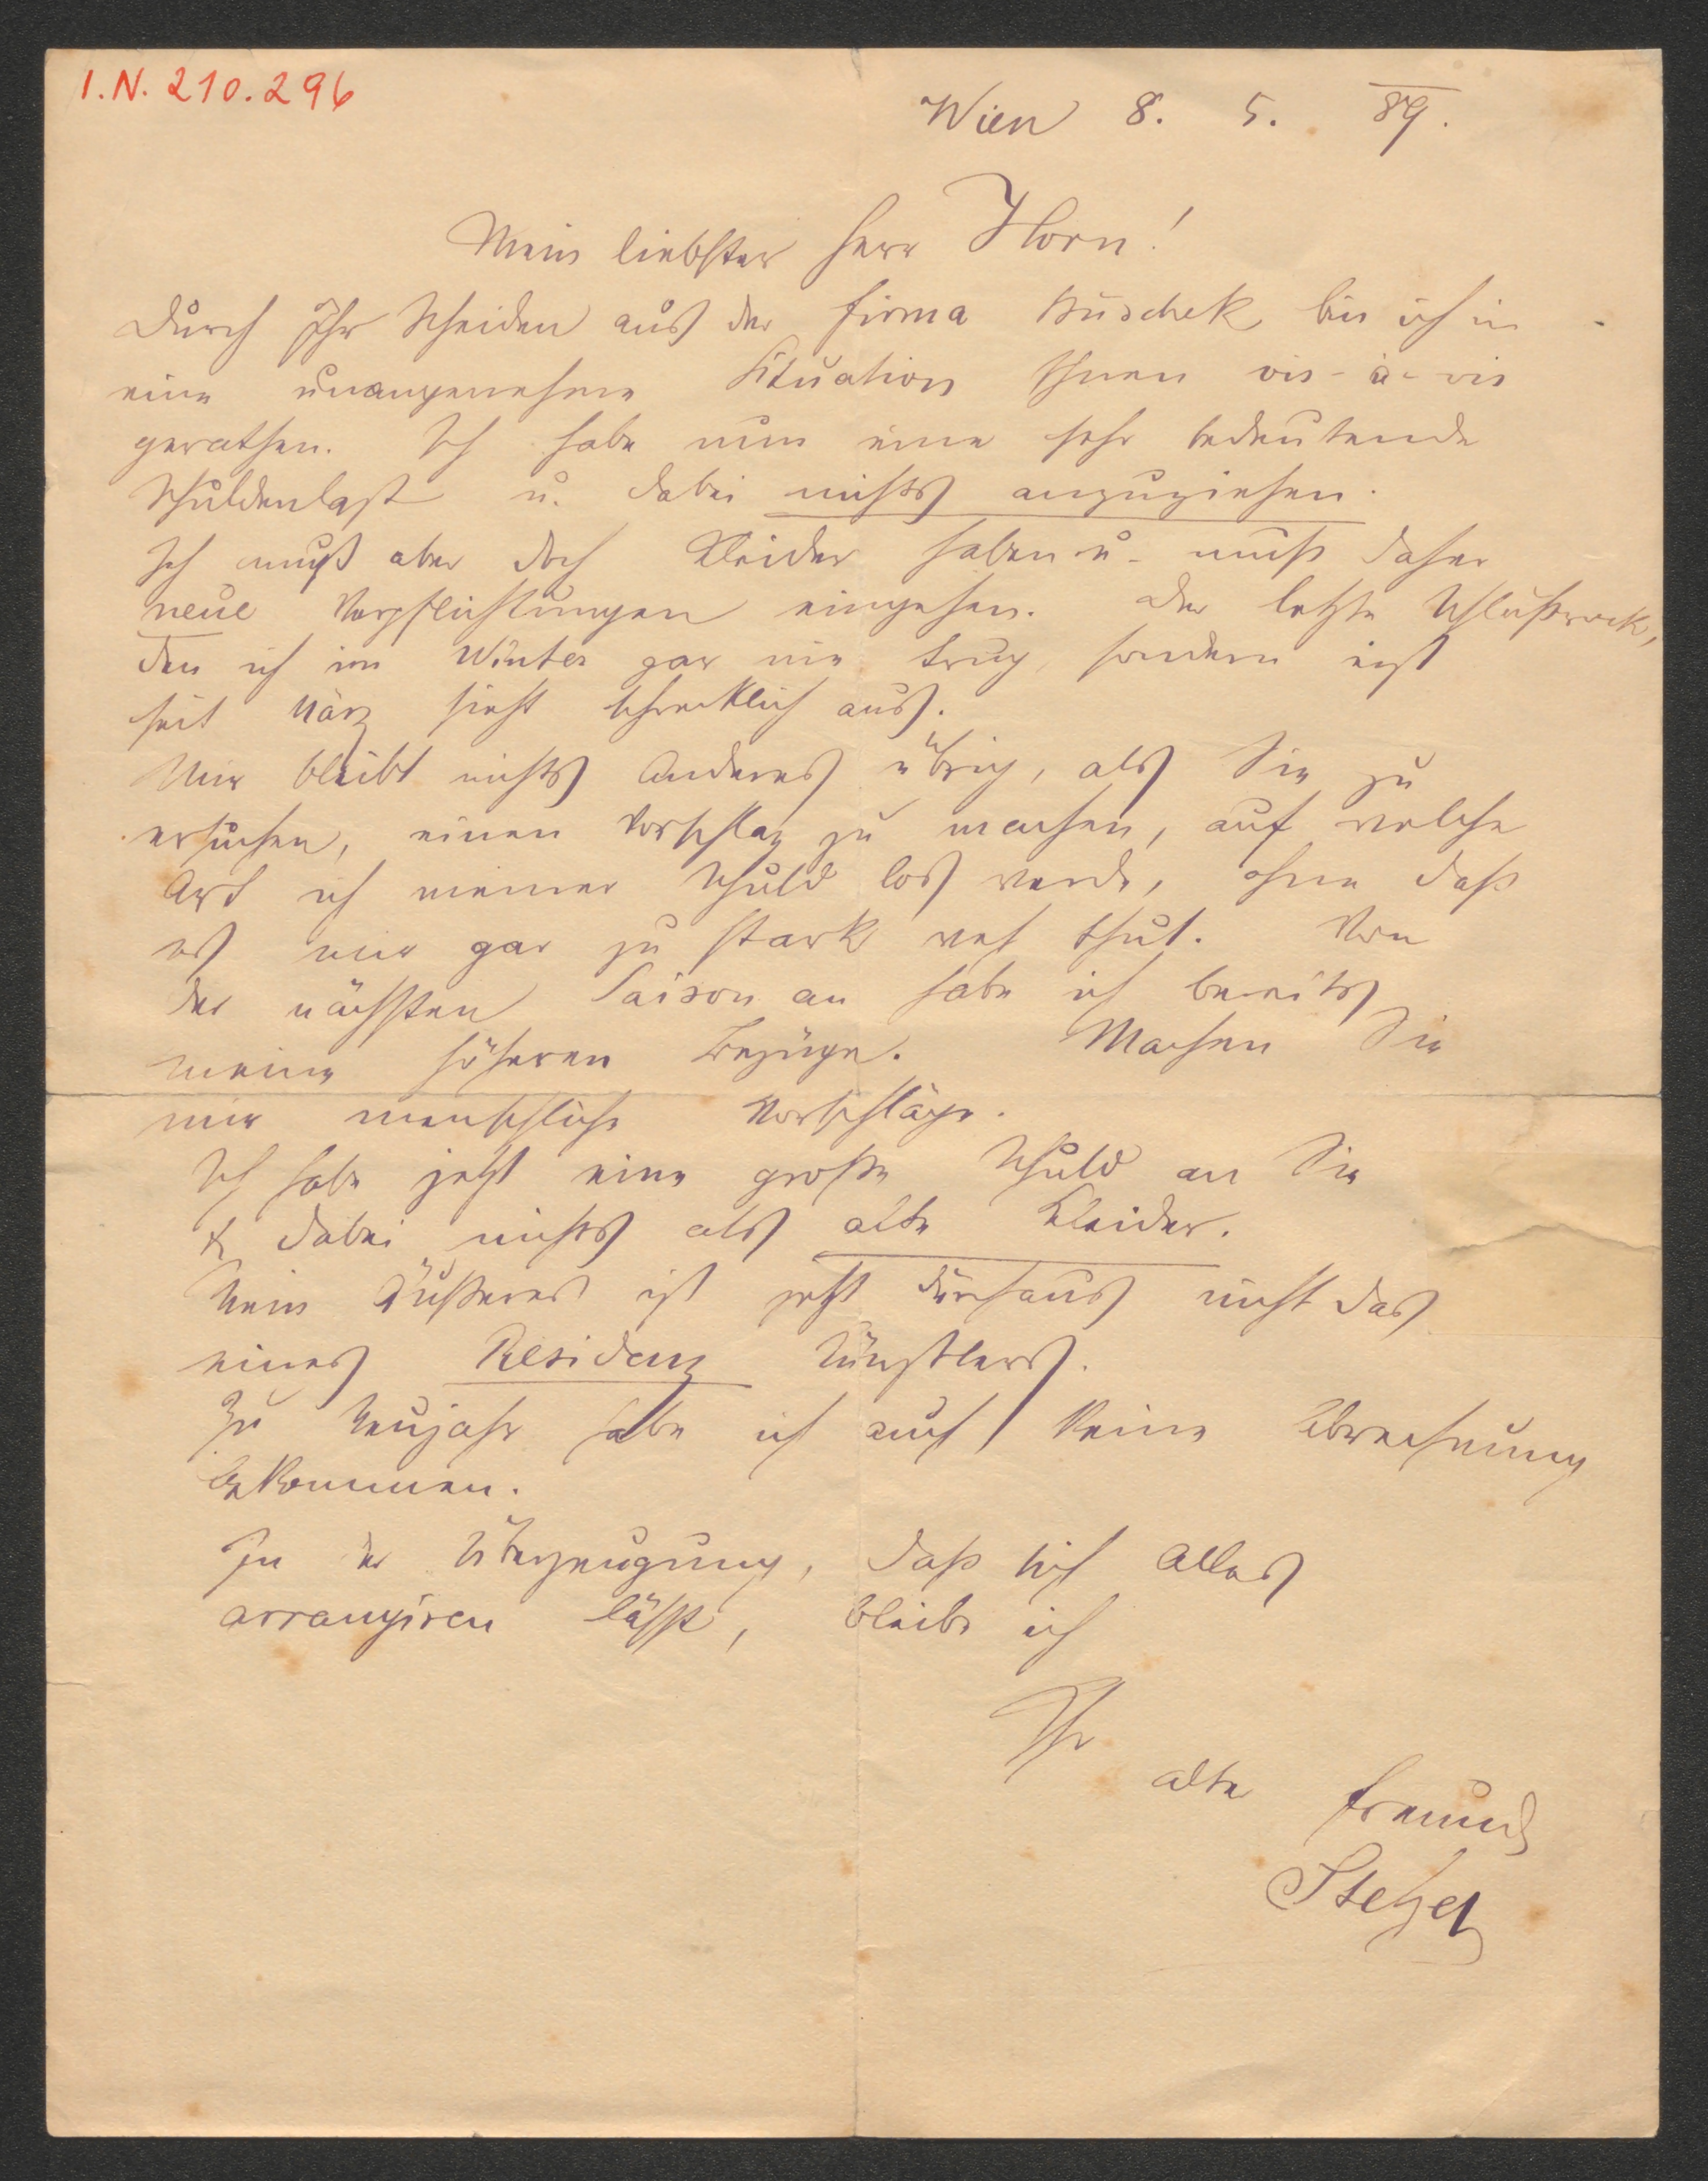 I.N. 210.296
Wien 8. 5. 89.
Mein liebster Herr Horn!
Durch Ihr Scheiden aus der Firma bin ich in
eine unangenehme Situation Ihnen vis-à-vis
gerathen. Ich habe nun eine sehr bedeutende
Schuldenlast u. dabei nichts anzuziehen.
Ich muß aber doch Kleider haben u. muß daher
neue Verpflichtungen eingehen. Der letzte Schlußrock,
den ich im Winter gar nie trug, sondern erst
seit März sieht schrecklich aus.
Mir bleibt nichts Anderes übrig, als Sie zu
ersuchen, einen Vorschlag zu machen, auf welche
Art ich meiner Schuld los werde, ohne daß
es mir gar zu stark weh thut. Von
der nächsten Saison an habe ich bereits
meine höheren Bezüge. Machen Sie
mir menschliche Vorschläge.
Ich habe jetzt eine große Schuld an Sie
& dabei nichts als alte Kleider.
Mein Äußeres ist jetzt durchaus nicht das
eines Residenz Künstlers.
Zu Neujahr habe ich auch keine Abrechnung
bekommen.
In der Überzeugung, daß sich Alles
arrangiren läßt, bleibe ich
Ihr
alter Freund